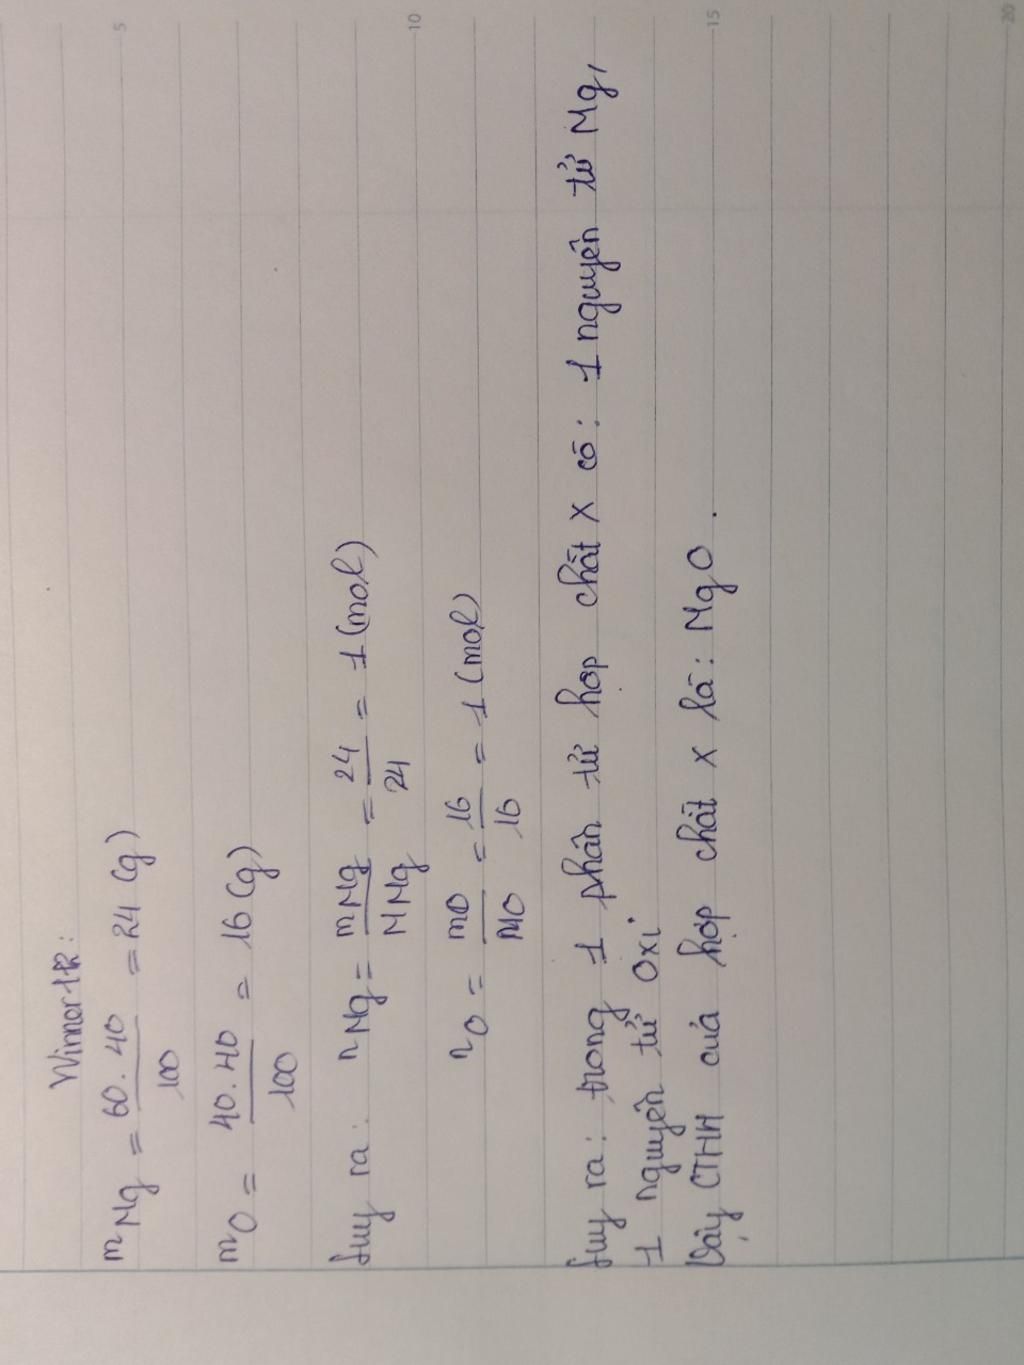 Winner 1k:
mMg = 60 . 40 / 100 = 24 (g)
mO = 40 . 40 / 100 = 16 (g)
Suy ra: nMg = mMg / MMg = 24 / 24 = 1 (mol)
nO = mO / MO = 16 / 16 = 1 (mol)
Suy ra: trong 1 phân tử hợp chất X có: 1 nguyên tử Mg,
1 nguyên tử Oxi
Vậy CTHH của hợp chất X là: MgO.
5
10
15
20